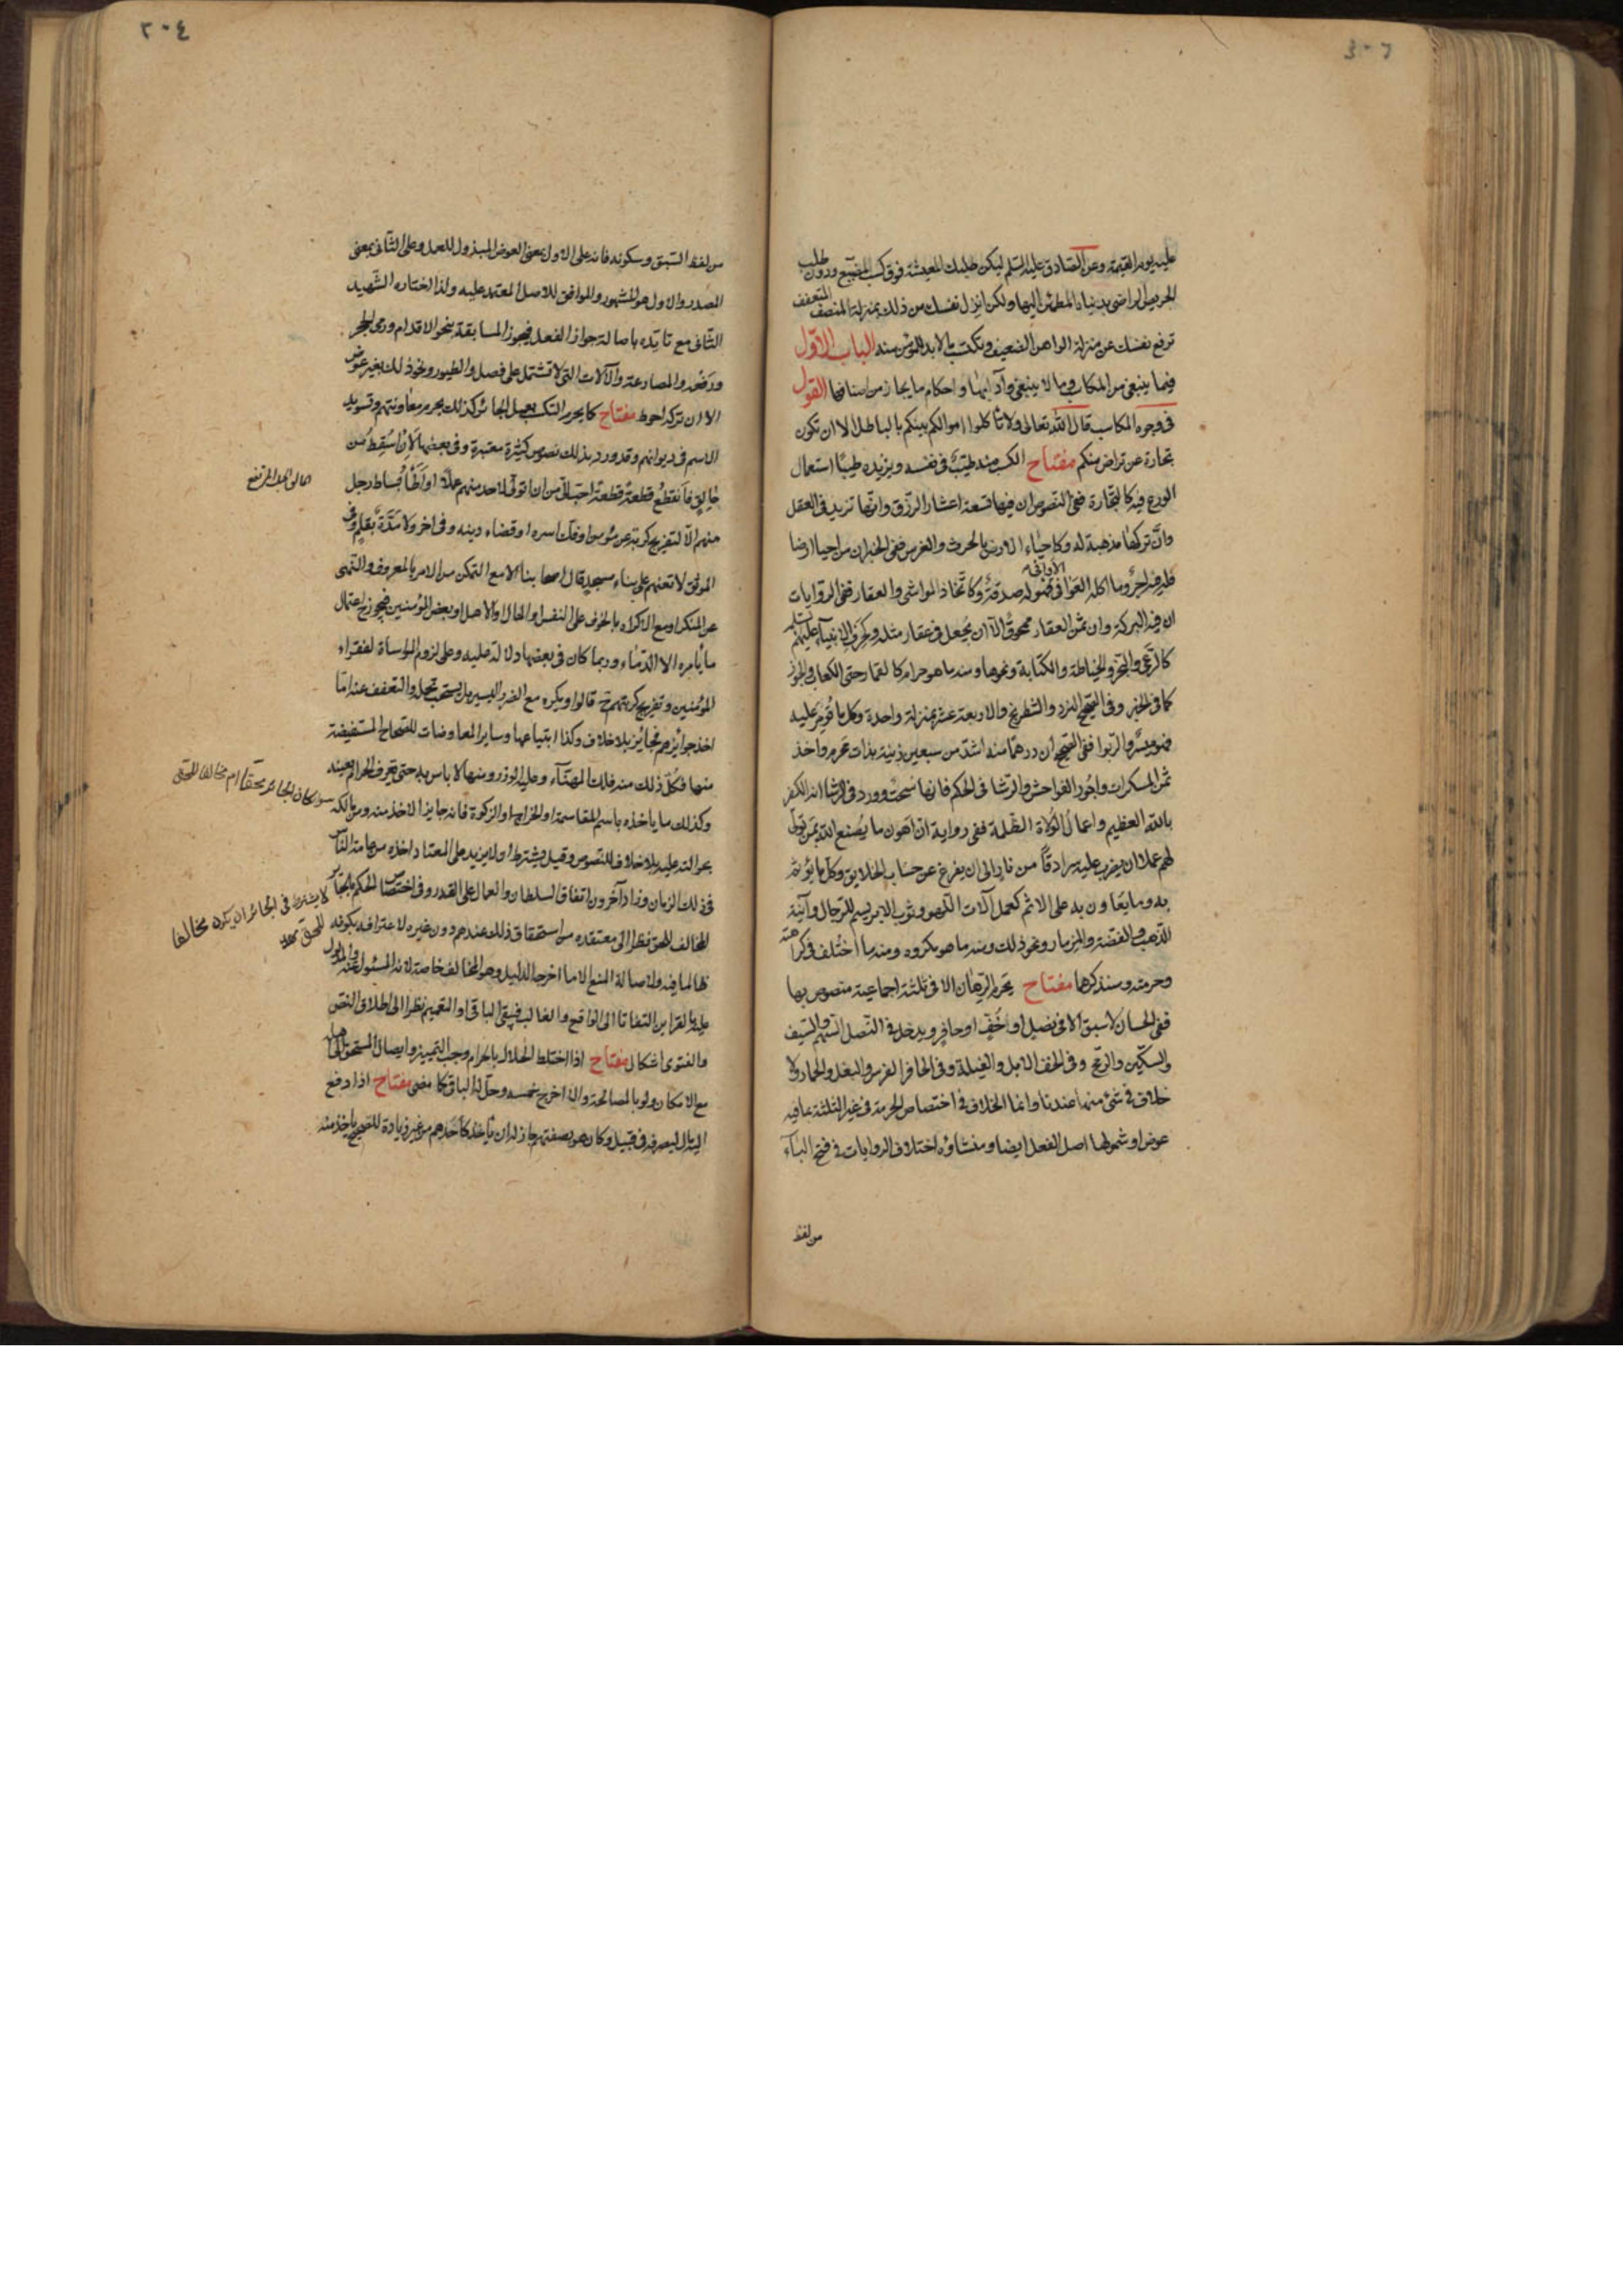 عليه يوم القيمة وعن الصادق عليه السلم ليكن طلبك المعيشة فوق كسب المضيع ودون طلب
الحريص الراضي بدنياه المطمئن اليها ولكن انزل نفسك من ذلك بمنزلة المنصف المتعفف
ترفع نفسك عن منزلة الواهن الضعيف وتكتسب ما لا بد للمؤمن منه الباب الاول
فيما ينبغي من المكاسب وما لا ينبغي وآدابها واحكام ما يجاز من اصنافها القول
في وجوه المكاسب قال الله تعالى ولا تأكلوا اموالكم بينكم بالباطل الا ان تكون
تجارة عن تراض منكم مفتاح الكسب منه طيب في نفسه ويزيده طيبا استعمال
الورع فيه كالتجارة ففي النصوص ان فيها تسعة اعشار الرزق وانها تزيد في العقل
وان تركها مذهبة له وكاحياء الارض بالحرث والغرس ففي الخبر ان من احيا ارضا
فله فيه اجر وما اكله العوافي فهو له صدقة وكاتخاذ المواشي والعقار ففي الروايات
ان فيه البركة وان ثمن العقار ممحوق الا ان يجعل في عقار مثله وكحرف الانبياء عليهم السلم
كالرعي والنجر والخياطة والكتابة ونحوها ومنه ما هو حرام كالقمار حتى الكعاب والجوز
كما في الخبر وفي الصحيح النرد والشطرنج والاربعة عشر بمنزلة واحدة وكل ما قومر عليه
فهو ميسر والربوا ففي الصحيح ان درهما منه اشد من سبعين زنية بذات محرم واخذ
ثمن المسكرات واجور الفواحش والرشا في الحكم فانها سحت وورد في الرشا انه الكفر
بالله العظيم واعمال الولاة الظلمة ففي رواية ان اهون ما يصنع الله بمن تولى
لهم عملا ان يضرب عليه سرادقا من نار الى ان يفرغ عن حساب الخلايق وكل ما يؤثم
به وما يعاون به على الاثم كعمل آلات اللهو وثوب الابريسم للرجال وآنية
الذهب والفضة والمزمار ونحو ذلك ومنه ما هو مكروه ومنه ما اختلف في كراهته
وحرمته وسنذكرها مفتاح يحرم الرهان الا في ثلثة اجماعية منصوص بها
ففي الحسان لا سبق الا في نصل او خف او حافر ويدخل في النصل السهم والسيف
والسكين والرمح وفي الخف الابل والفيلة وفي الحافر الفرس والبغل والحمار ولا
خلاف في شئ منها عندنا وانما الخلاف في اختصاص الحرمة في غير الثلثة بما فيه
عوض او شمولها اصل الفعل ايضا ومنشاؤه اختلاف الروايات في فتح الباء
من لفظ
٢٠٤
من لفظ السبق وسكونه فانه على الاول بمعنى العوض المبذول للعمل وعلى الثاني بمعنى
المصدر والاول هو المشهور والموافق للاصل المعتمد عليه ولذا اختاره الشهيد
الثاني مع تايده باصالة جواز الفعل فيجوز المسابقة بنحو الاقدام ورمي الحجر
ودفعه والمصارعة والآلات التي لا تشتمل على فصل والطيور ونحو ذلك بغير عوض
الا ان تركه احوط مفتاح كما يحرم التكسب بعمل الجائر كذلك يحرم معاونتهم وتسويد
الاسم في ديوانهم وقد ورد بذلك نصوص كثيرة معتبرة وفي بعضها لان اسقط من
حالق فانقطع قطعة قطعة احب الي من ان اتولى لاحد منهم عملا او اطأ بساط رجل
منهم الا لتفريج كربة عن مؤمن او فك اسره او قضاء دينه وفي اخر ولا مدة بقلم وفي
الموثق لا تعنهم على بناء مسجد قال اصحابنا الا مع التمكن من الامر بالمعروف والنهي
عن المنكر او مع الاكراه بالخوف على النفس او المال او الاهل او بعض المؤمنين فيجوز اعتمال
ما يأمره الا الدماء وربما كان في بعضها دلالة عليه وعلى لزوم المواساة لفقراء
المؤمنين وتفريج كربتهم ح قالوا ويكره مع الضرر اليسير بل يستحب تحمله والتعفف عنه اما
اخذ جوائزهم فجائز بلا خلاف وكذا ابتياعها وساير المعاوضات للصحاح المستفيضة
منها فكل ذلك منه فلك المهنآء وعليه الوزر ومنها لا باس به حتى يعرف الحرام بعينه
وكذلك ما ياخذه باسم المقاسمة او الخراج او الزكوة فانه جايز الاخذ منه ومن مالكه
بحوالته عليه بلا خلاف للنصوص وقيل ويشترط ان لا يزيد على المعتاد اخذه من عامة الناس
في ذلك الزمان وزاد آخرون اتفاق السلطان والعمال على القدر وفي اختصاص الحكم بالجائر
المخالف للحق نظرا الى معتقده من استحقاق ذلك عندهم دون غيره لاعترافه بكونه
ظالما فيه ولاصالة المنع الا ما اخرجه الدليل وهو المخالف خاصة لانه المسئول عنه والمدلول
عليه بالقراين التفاتا الى الواقع والغالب فيبقى الباقي او التعميم نظرا الى اطلاق النص
والفتوى اشكال مفتاح اذا اختلط الحلال بالحرام وجب التمييز وايصال المستحق الى اهله
مع الامكان ولو بالمصالحة والا اخرج خمسه وحل له الباقي كما مضى مفتاح اذا دفع
اليه مال ليصرفه في قبيل وكان هو بصفتهم جاز له ان يأخذ كاحدهم من غير زيادة للصحيح ياخذ منه
حالق الجبل المرتفع
سواء كان الجائر محقا ام مخالفا للحق
لا يشترط في الجائر ان يكون مخالفا
للحق